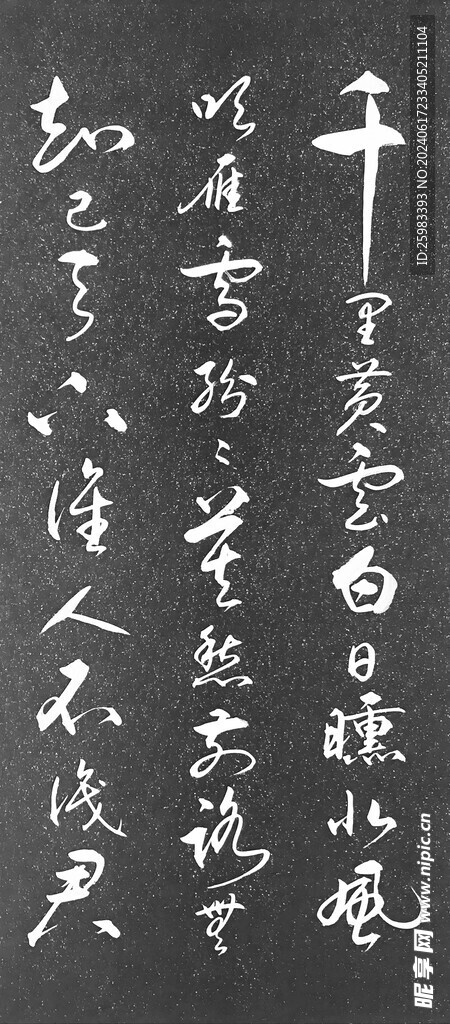 千里黄雲白日曛北風
吹雁雪紛〻莫愁前路無
知己天下誰人不識君
ID:25983393 NO:20240617233405211104
昵享网 www.nipic.cn